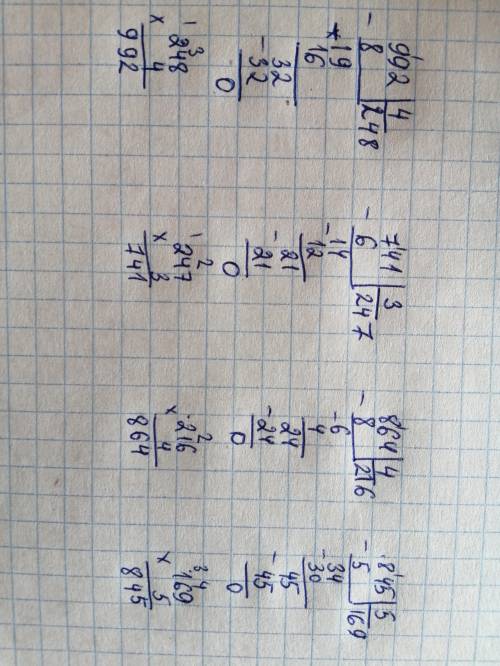 992 | 4
- 8 | 248
19
16
32
- 32
0
1 3
248
x 4
992
741 | 3
- 6 | 247
- 14
12
21
- 21
0
1 2
247
x 3
741
864 | 4
- 8 | 216
- 6
4
24
- 24
0
2
216
x 4
864
845 | 5
- 5 | 169
- 34
30
45
- 45
0
3 4
169
x 5
845